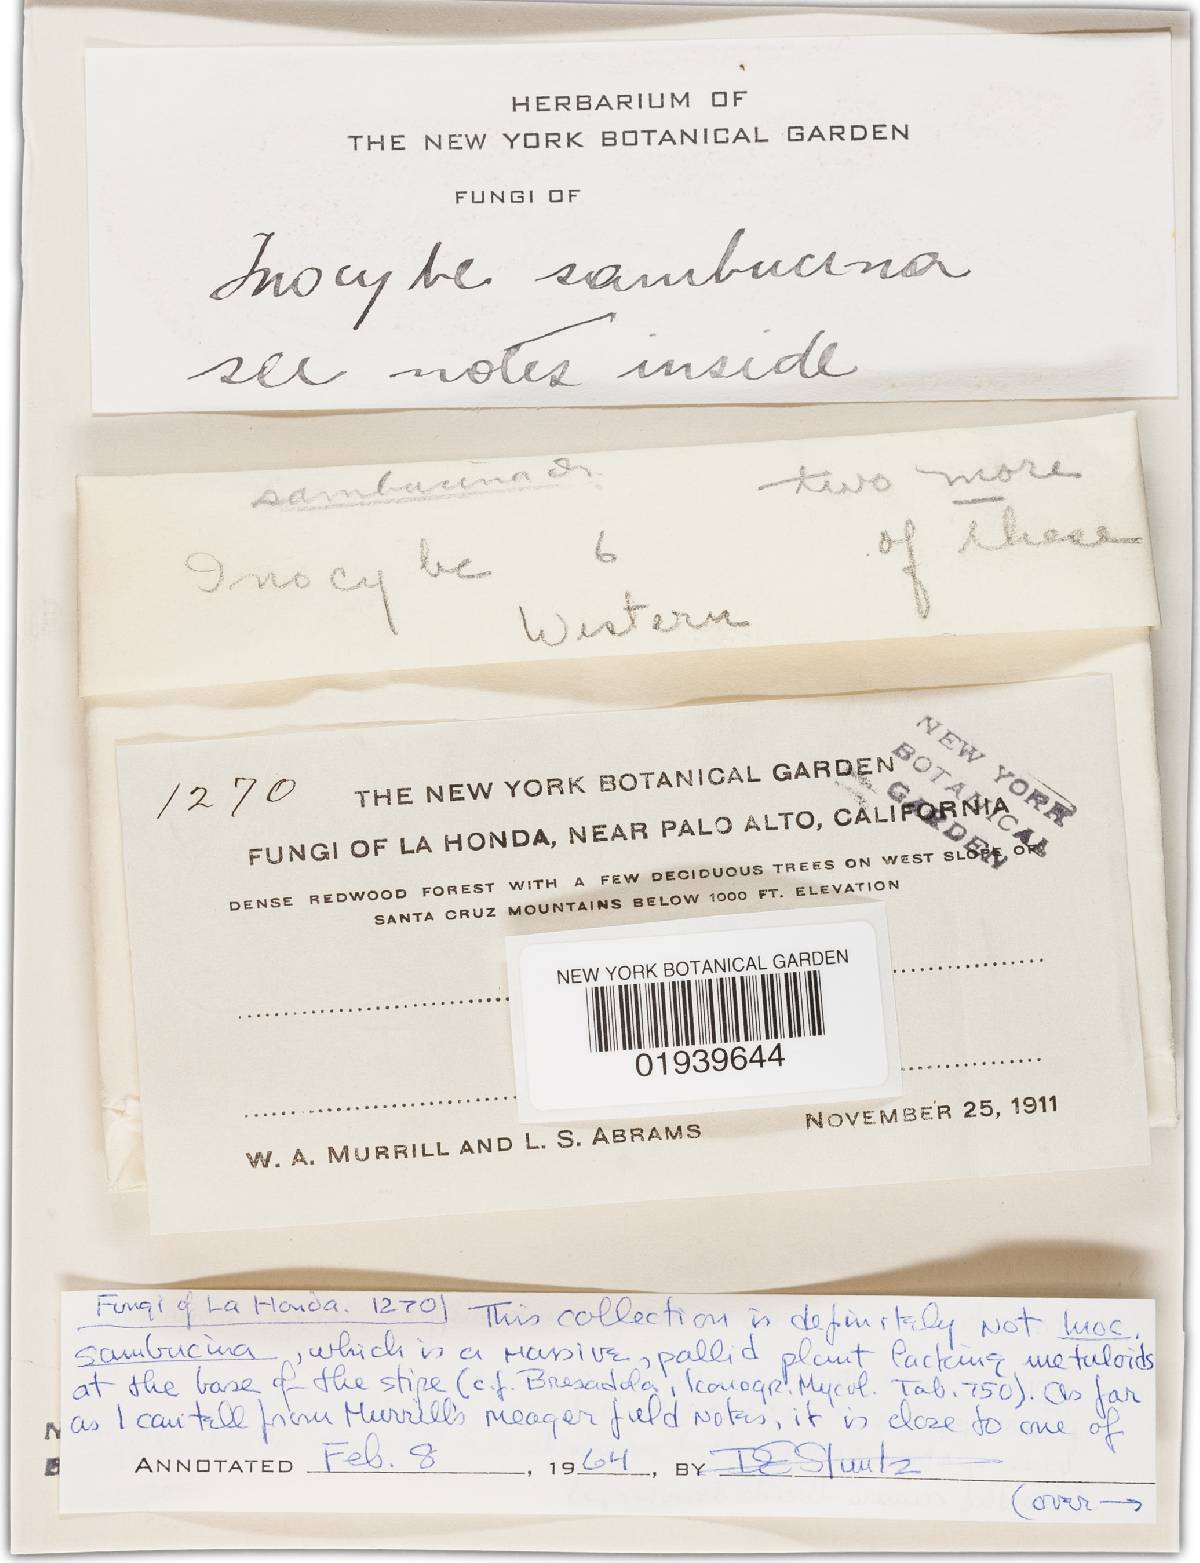 HERBARIUM OF
THE NEW YORK BOTANICAL GARDEN
FUNGI OF
Inocybe sambucina
see notes inside
sambucina
two more
Inocybe 6
of these
Western
1270
THE NEW YORK BOTANICAL GARDEN
FUNGI OF LA HONDA, NEAR PALO ALTO, CALIFORNIA
DENSE REDWOOD FOREST WITH A FEW DECIDUOUS TREES ON WEST SLOPE OF
SANTA CRUZ MOUNTAINS BELOW 1000 FT. ELEVATION
NEW YORK
BOTANICAL
GARDEN
NEW YORK BOTANICAL GARDEN
01939644
W. A. MURRILL AND L. S. ABRAMS
NOVEMBER 25, 1911
Fungi of La Honda. 1270] This collection is definitely not Inoc.
sambucina, which is a massive, pallid plant lacking metuloids
at the base of the stipe (c.f. Bresadola, Iconogr. Mycol. Tab. 750). As far
as I can tell from Murrill's meager field notes, it is close to one of
ANNOTATED Feb. 8, 1964, BY D E Stuntz
(over →